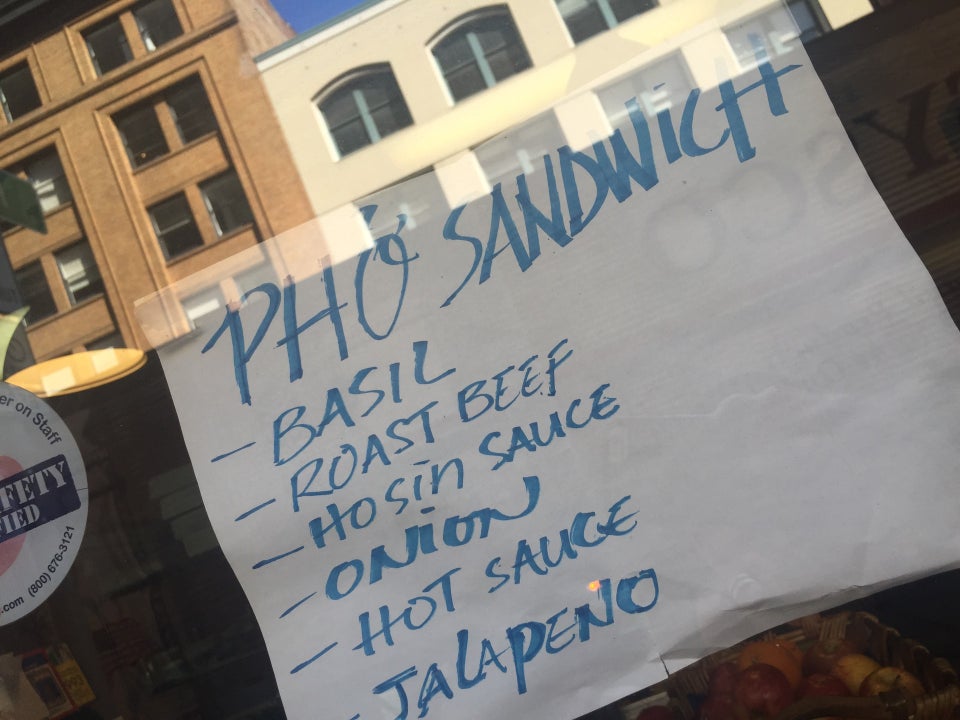 PHỞ SANDWICH
- BASIL
- ROAST BEEF
- HOSiN SAUCE
- ONiON
- HOT SAUCE
- JALAPENO
er on Staff
FETY
FIED
.com (800) 676-3121